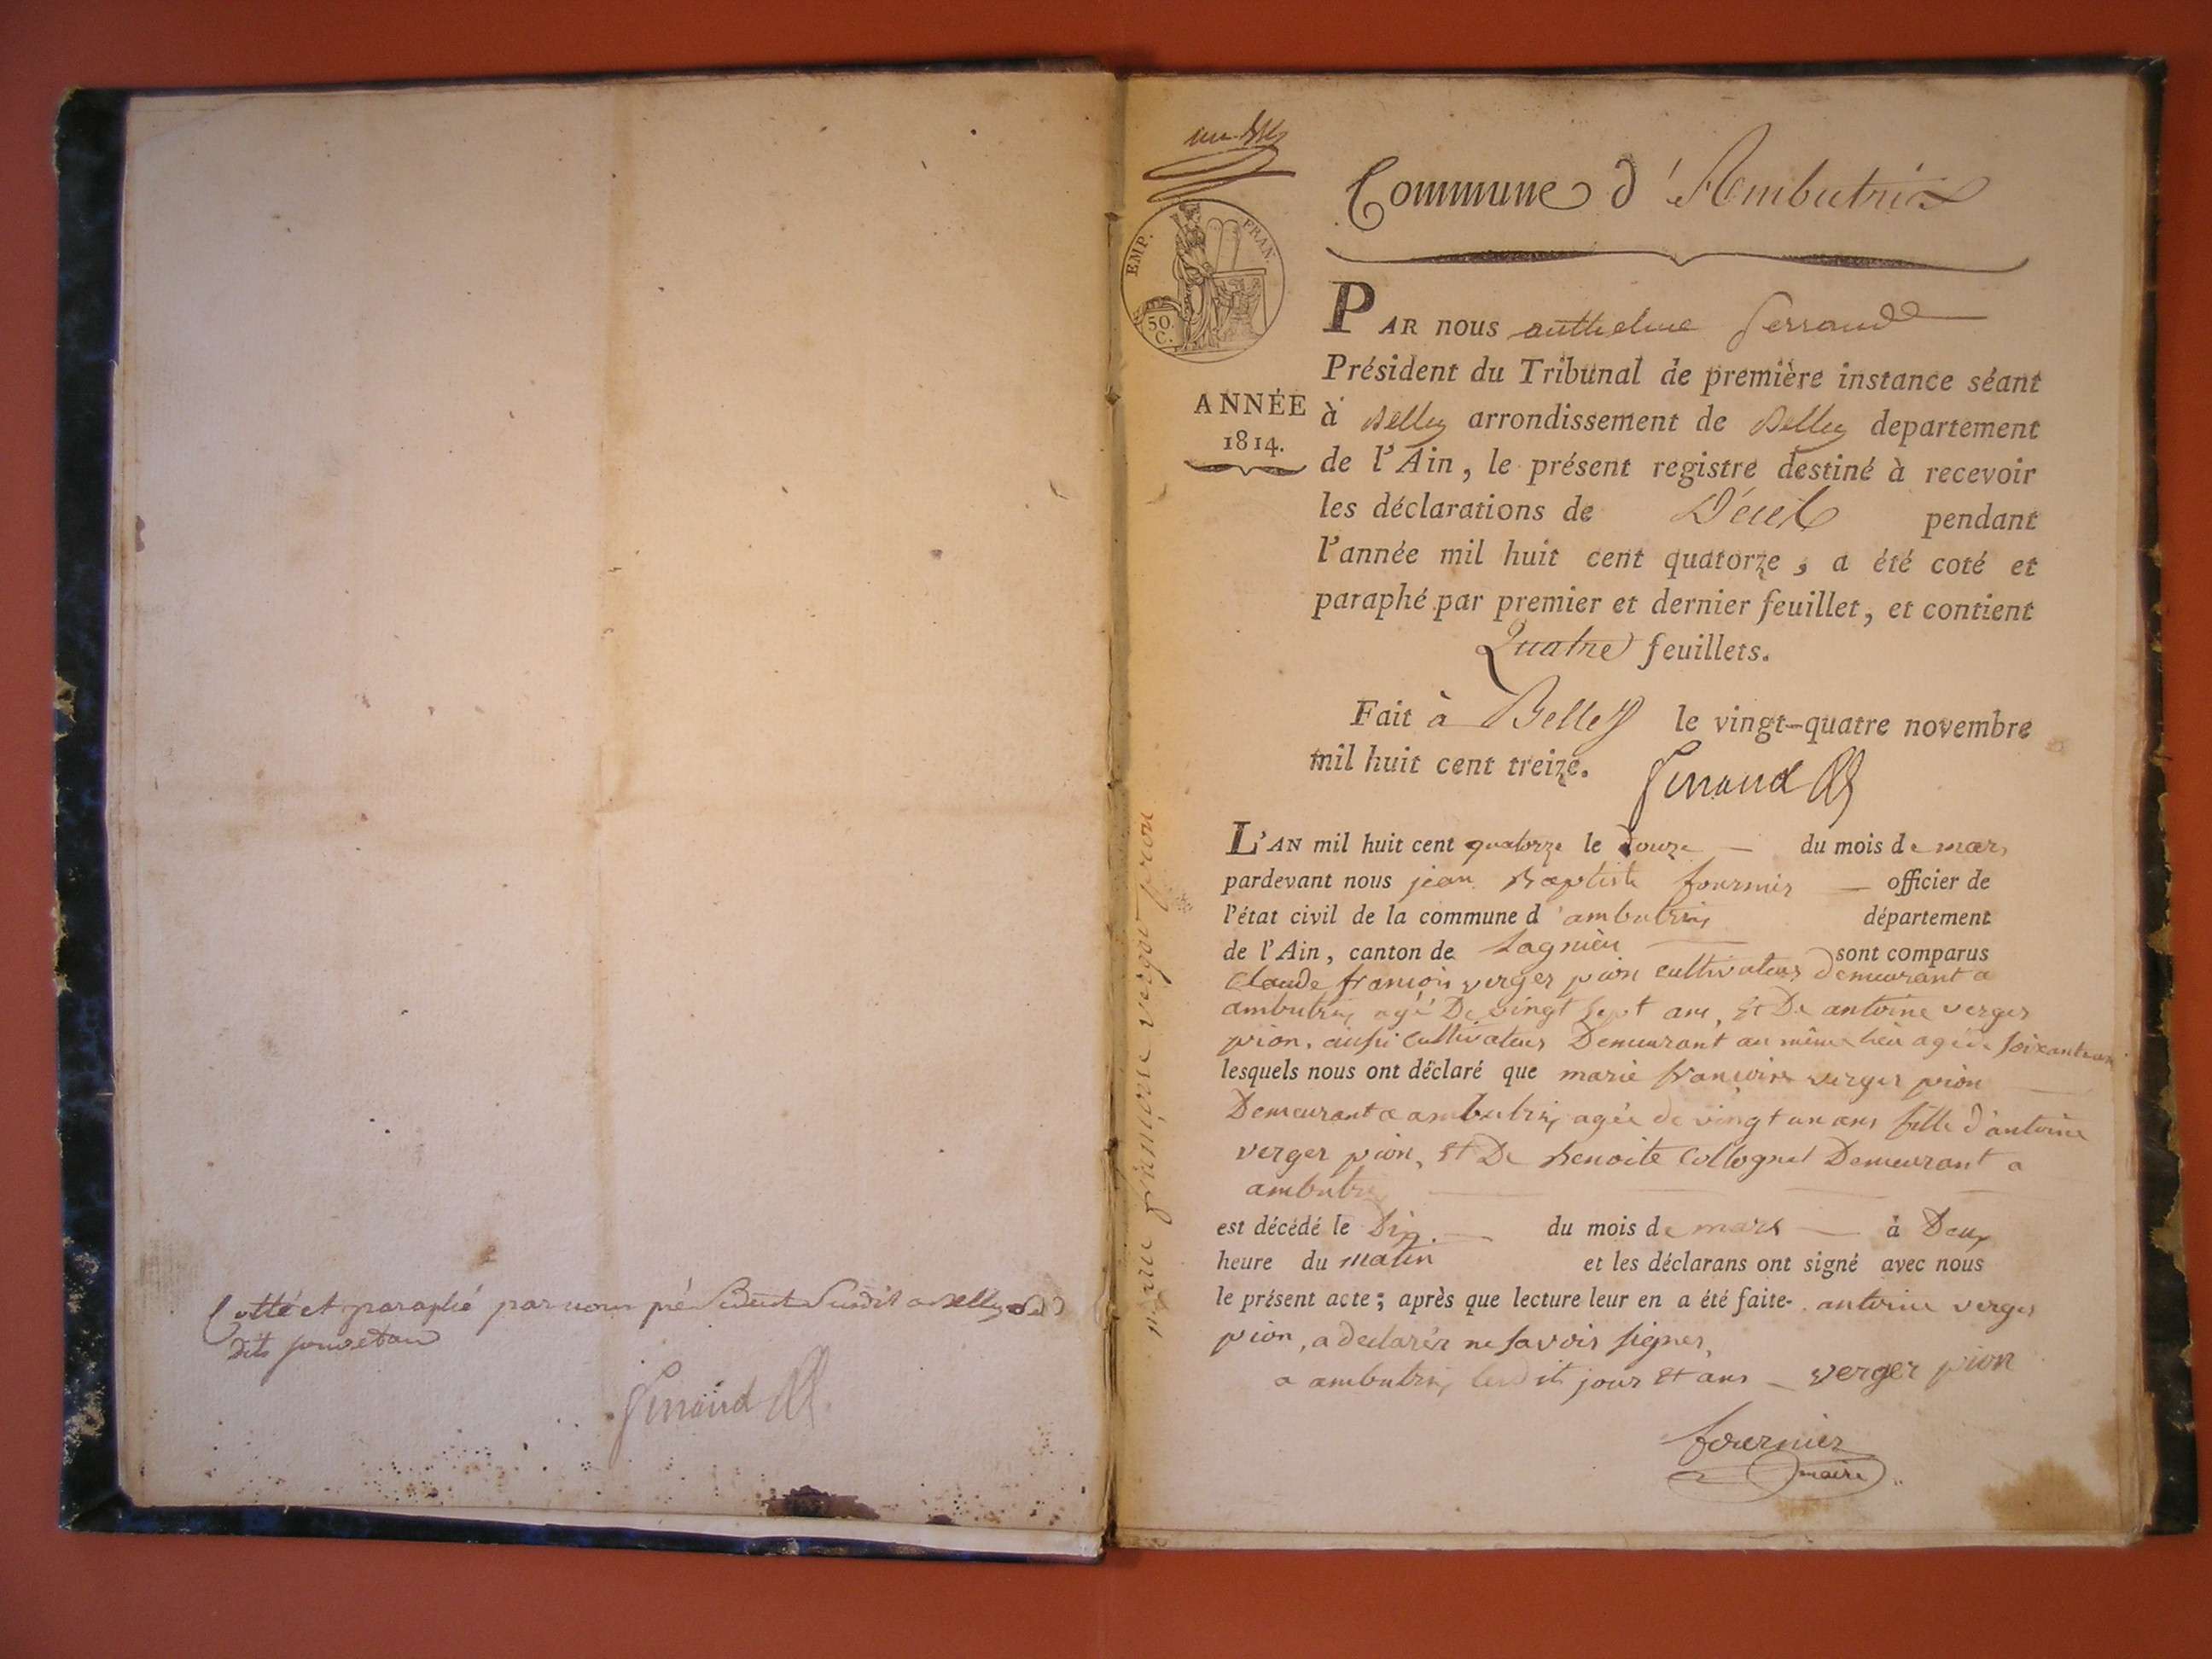 Cotté et paraphé par nous président susdit a Belley
dits jour et an
un
Commune d'Ambutrix
EMP. FRAN.
50.
C.
ANNÉE
1814.
PAR nous anthelme
Président du Tribunal de première instance séant
à Belley arrondissement de Belley departement
de l'Ain, le présent registre destiné à recevoir
les déclarations de Décès pendant
l'année mil huit cent quatorze, a été coté et
paraphé par premier et dernier feuillet, et contient
Quatre feuillets.
Fait à Belley le vingt-quatre novembre
mil huit cent treize.
L'AN mil huit cent quatorze le douze du mois de mars
pardevant nous jean Baptiste fournier officier de
l'état civil de la commune d'ambutrix département
de l'Ain, canton de Lagnieu sont comparus
Claude françois verger pion cultivateur demeurant a
ambutrix agé De vingt sept ans, et De antoine verger
pion, aussi cultivateur Demeurant au même lieu agé de soixante
lesquels nous ont déclaré que marie françoise verger pion
Demeurant a ambutrix agée de vingt un ans fille d'antoine
verger pion, et De Benoite Demeurant a
ambutrix
est décédé le Dix du mois de mars à Deux
heure du matin et les déclarans ont signé avec nous
le présent acte; après que lecture leur en a été faite. antoine verger
pion, a declarér ne savoir signer,
a ambutrix ledit jour et ans verger pion
fournier
maire